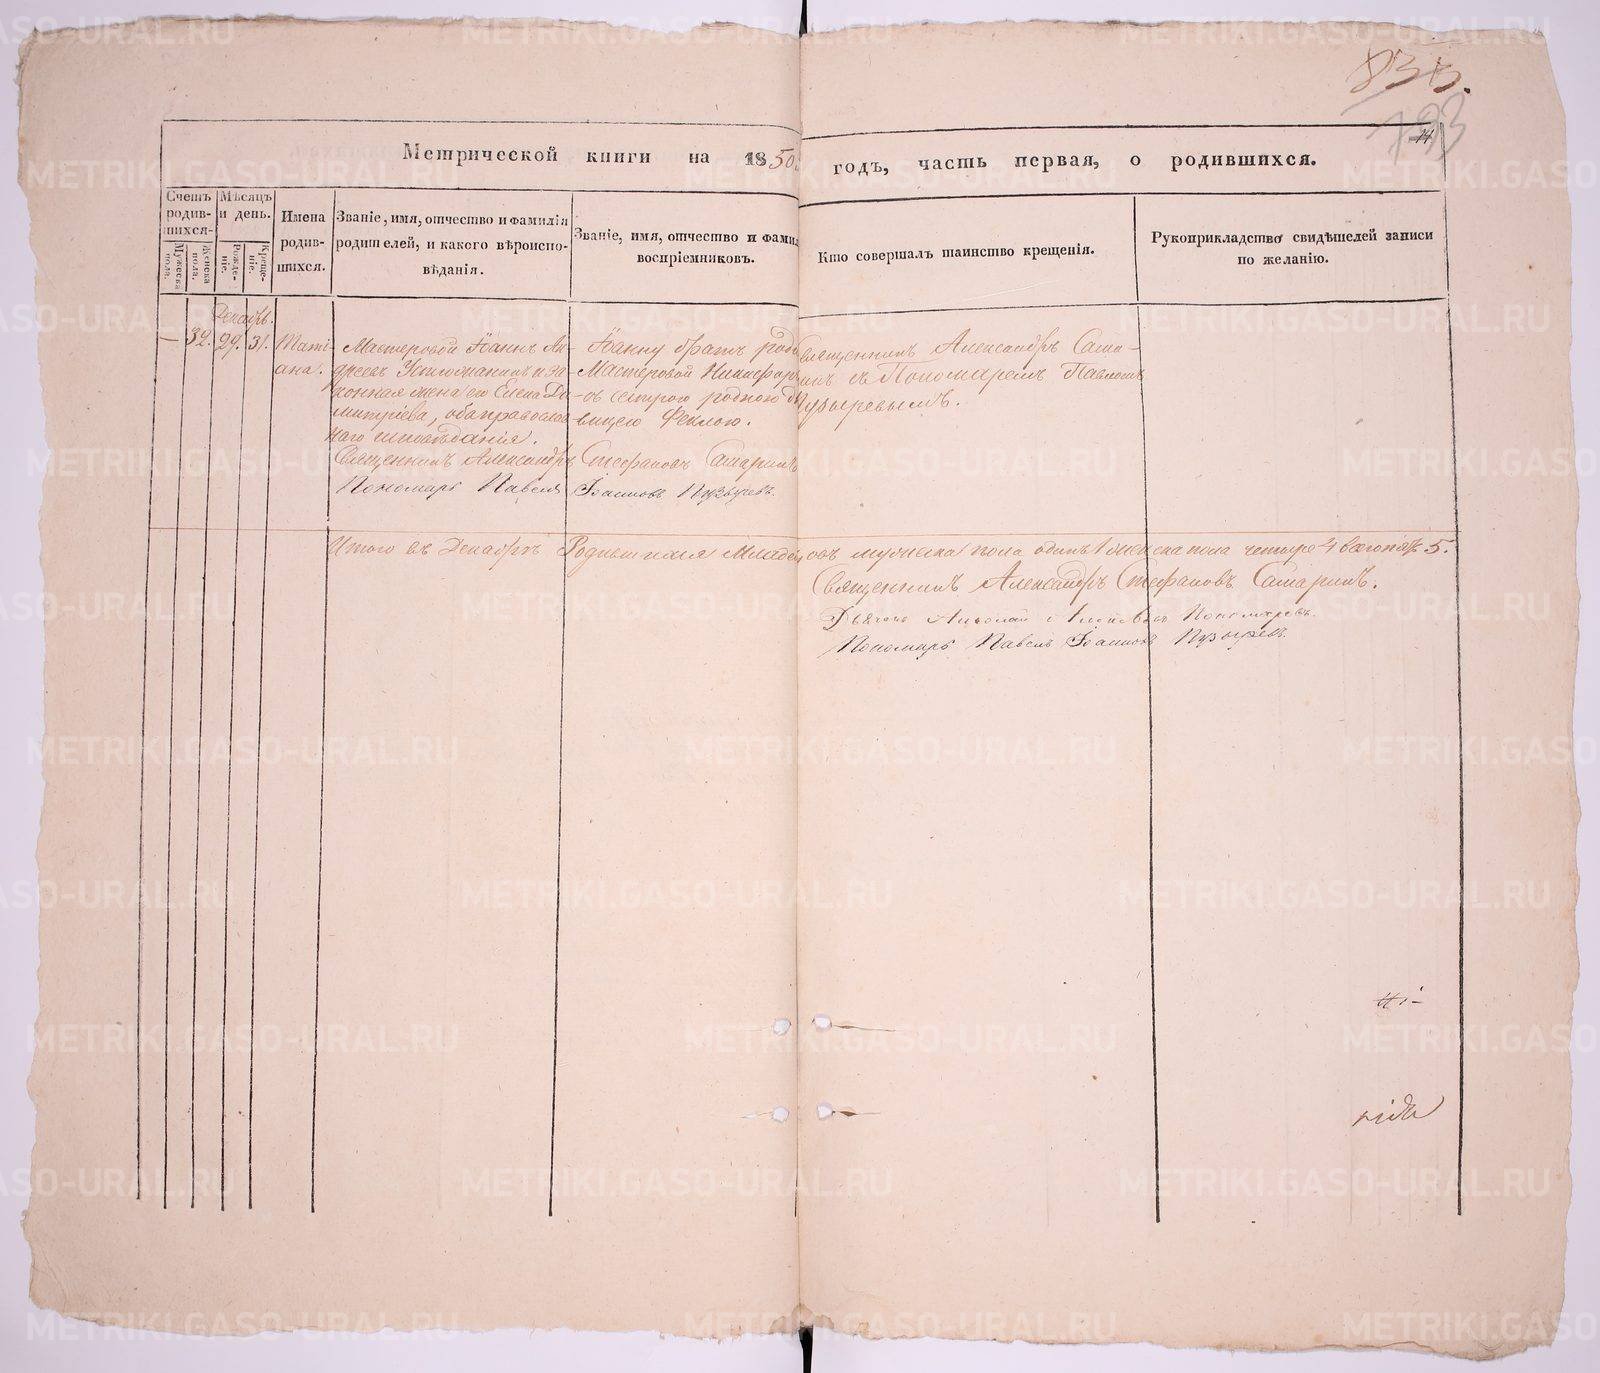 833.
793
14
Метрической книги на 1850 годъ, часть первая, о родившихся.
Счетъ родившихся.
Мужеска пола.
Женска пола.
Мѣсяцъ и день.
Рожденіе.
Крещеніе.
Имена родившихся.
Званіе, имя, отчество и фамилія
родителей, и какого вѣроиспо-
вѣданія.
Званіе, имя, отчество и фами
воспріемниковъ.
Кто совершалъ таинство крещенія.
Рукоприкладство свидѣтелей записи
по желанію.
Декабрь.
— 32. 29. 31.
Тати-
ана.
Мастеровой Іоаннъ Ан-
дреевъ и за-
конная жена его Елена Ди-
митріева, оба православ
наго исповѣданія.
Іоанну братъ родн
Мастеровой Никифор
-ъ съ сестрою родною д
вицею Феклою.
Священникъ Александръ Сама-
ринъ съ Пономаремъ Павломъ
Пузыревымъ.
Священникъ Александръ Стефановъ Самаринъ
Пономарь Павелъ Іоанновъ Пузыревъ.
Итого въ Декабрѣ Родившихся Младенцовъ мужеска пола одинъ 1 женска пола четыре 4 всего пять 5.
Священникъ Александръ Стефановъ Самаринъ.
Дьячекъ Николай Пономаревъ.
Пономарь Павелъ Іоанновъ Пузыревъ
METRIKI.GASO-URAL.RU